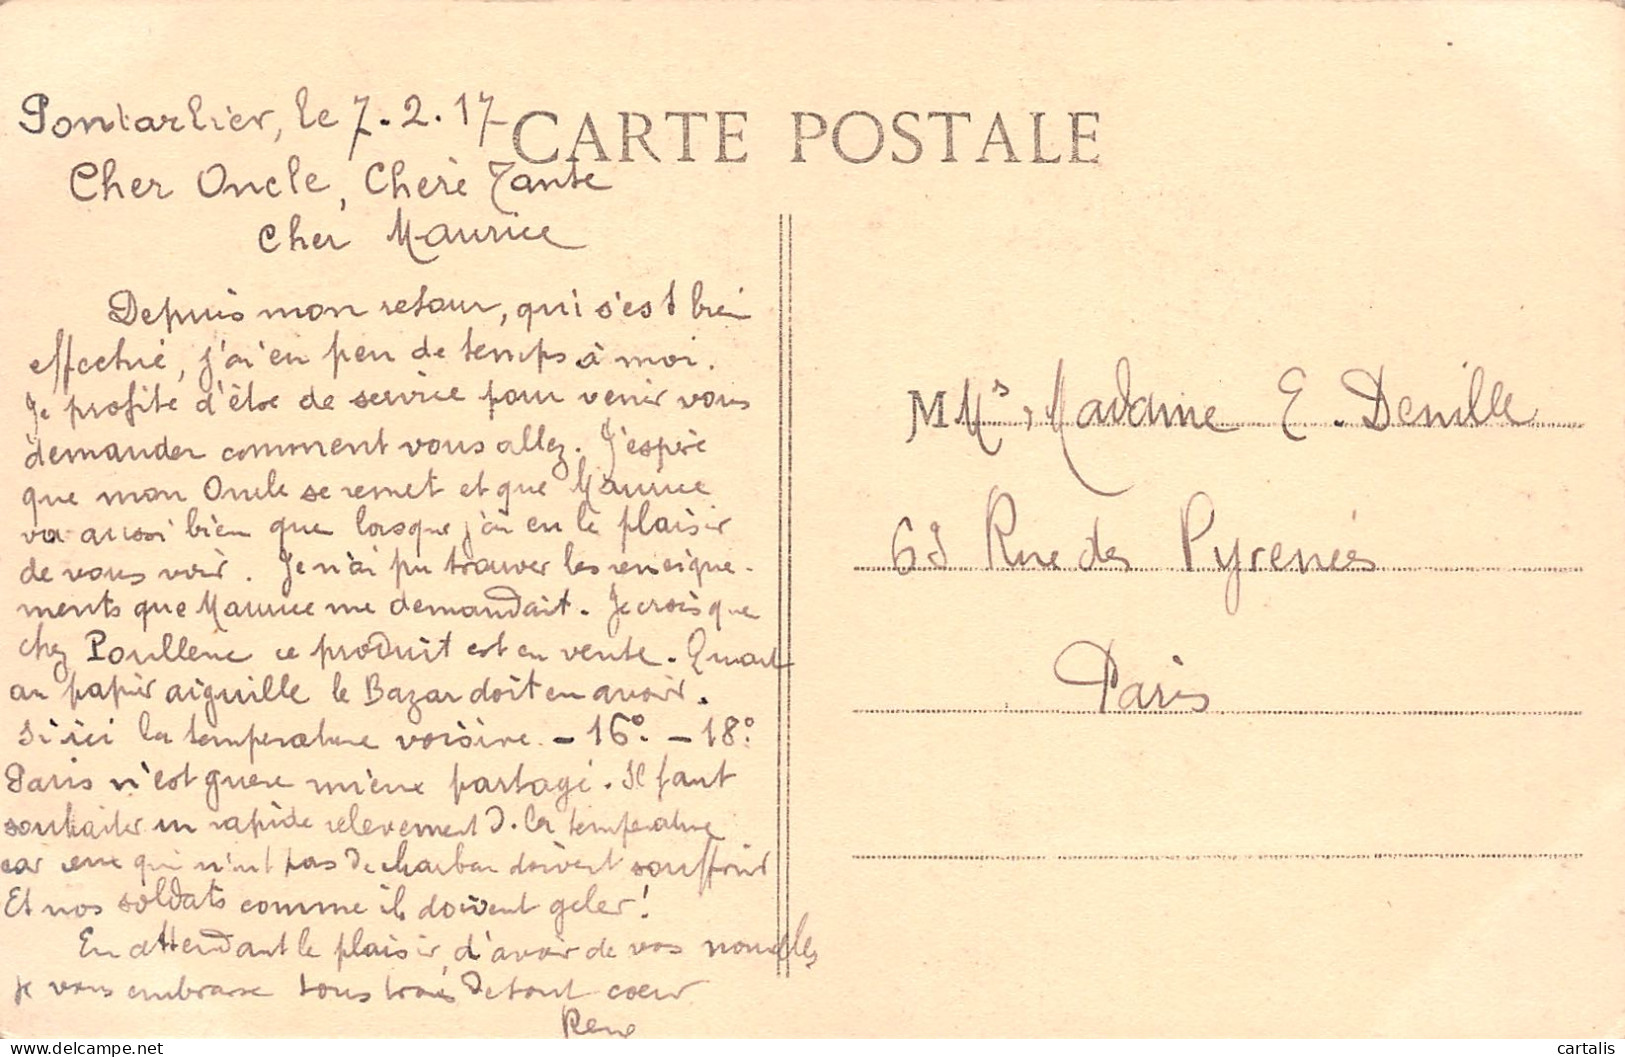 Pontarlier, le 7.2.17
CARTE POSTALE
Cher Oncle, Chère Tante
Cher Maurice
Depuis mon retour, qui s'est bien
effectué, j'ai eu peu de temps à moi.
Je profite d'être de service pour venir vous
demander comment vous allez. J'espère
que mon Oncle se remet et que Maurice
va aussi bien que lorsque j'ai eu le plaisir
de vous voir. Je n'ai pu trouver les renseigne-
ments que Maurice me demandait. Je crois que
chez Poullenc ce produit est en vente. Quant
au papier aiguille le Bazar doit en avoir.
Si ici la température voisine -16° -18°
Paris n'est guère mieux partagé. Il faut
souhaiter un rapide relèvement d. la température
car ceux qui n'ont pas de charbon doivent souffrir
Et nos soldats comme ils doivent geler!
En attendant le plaisir, d'avoir de vos nouvelles
je vous embrasse tous trois de tout coeur
René
M Mr, Madame E. Denille
63 Rue des Pyrénées
Paris
cartalis